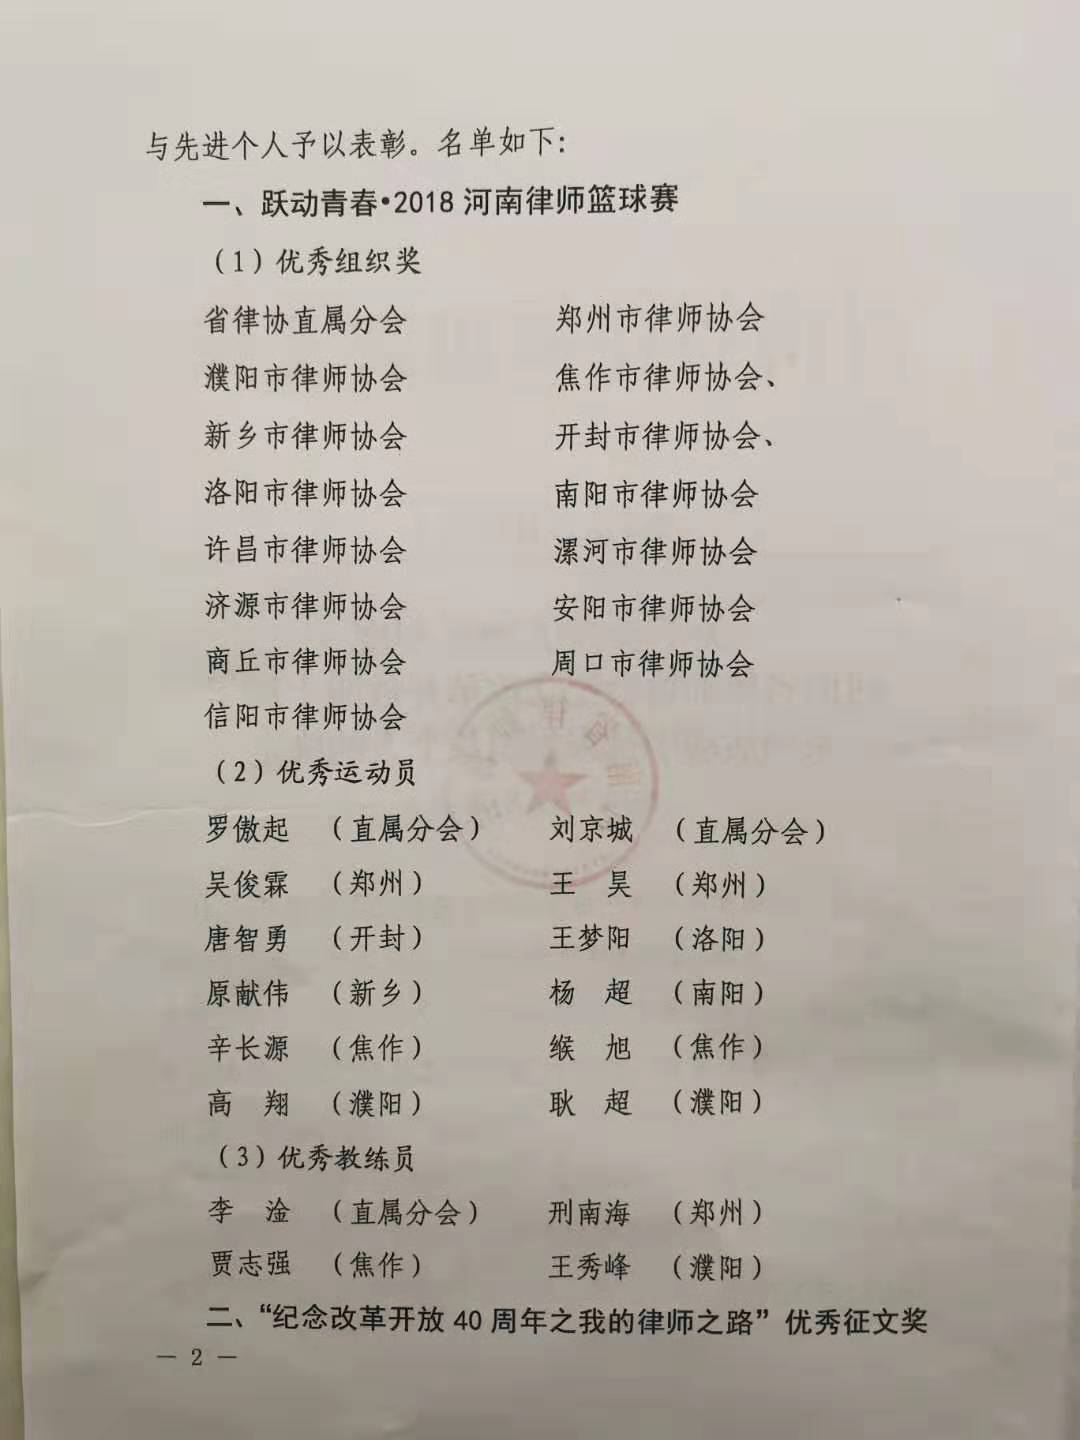 与先进个人予以表彰。名单如下：
一、跃动青春•2018 河南律师篮球赛
（1）优秀组织奖
省律协直属分会 郑州市律师协会
濮阳市律师协会 焦作市律师协会、
新乡市律师协会 开封市律师协会、
洛阳市律师协会 南阳市律师协会
许昌市律师协会 漯河市律师协会
济源市律师协会 安阳市律师协会
商丘市律师协会 周口市律师协会
信阳市律师协会
（2）优秀运动员
罗傲起 （直属分会） 刘京城 （直属分会）
吴俊霖 （郑州） 王 昊 （郑州）
唐智勇 （开封） 王梦阳 （洛阳）
原献伟 （新乡） 杨 超 （南阳）
辛长源 （焦作） 缑 旭 （焦作）
高 翔 （濮阳） 耿 超 （濮阳）
（3）优秀教练员
李 淦 （直属分会） 刑南海 （郑州）
贾志强 （焦作） 王秀峰 （濮阳）
二、“纪念改革开放 40 周年之我的律师之路”优秀征文奖
— 2 —